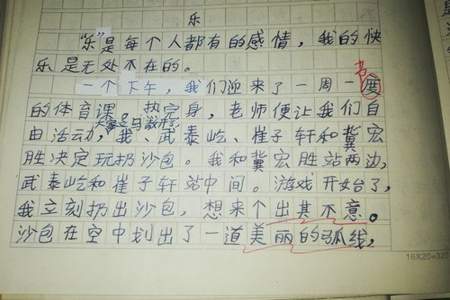 乐
“乐”是每个人都有的感情，我的快
乐是无处不在的。
一个下午，我们迎来了一周一度
的体育课，热完身，老师便让我们自
由活动，我、武泰屹、崔子轩和冀宏
胜决定玩扔沙包。我和冀宏胜站两边，
武泰屹和崔子轩站中间。游戏开始了，
我立刻扔出沙包，想来个出其不意。
沙包在空中划出了一道美丽的弧线，
16X20=320